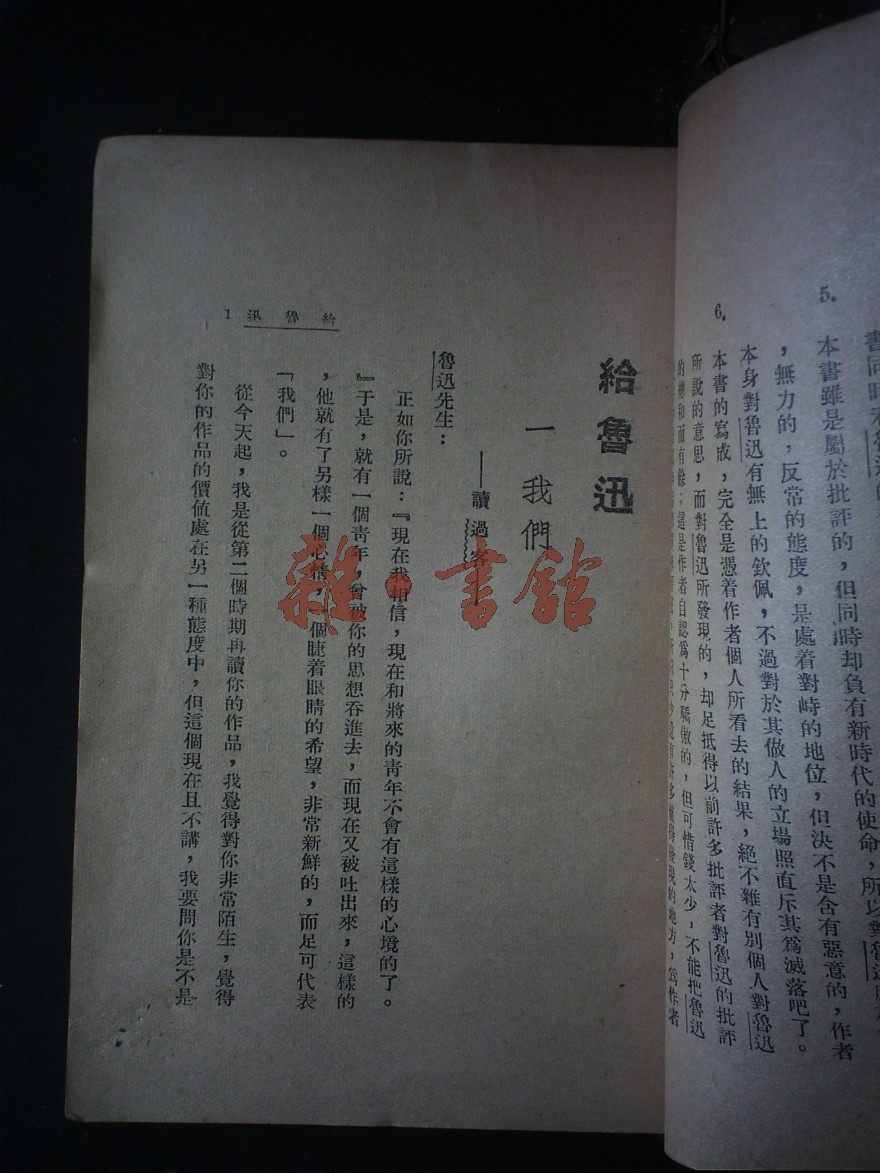 5. 本書雖是屬於批評的，但同時却負有新時代的使命，所以對魯迅
，無力的，反常的態度，是處着對峙的地位，但決不是含有惡意的，作者
本身對魯迅有無上的欽佩，不過對於其做人的立場照直斥其爲滅落吧了。
6. 本書的寫成，完全是憑着作者個人所看去的結果，絕不雜有別個人對魯迅
所說的意思，而對魯迅所發現的，却足抵得以前許多批評者對魯迅的批評
的總和而有餘；這是作者自認爲十分驕傲的，但可惜錢太少，不能把魯迅
給魯迅
一 我們
——讀過客
魯迅先生：
正如你所說：『現在我相信，現在和將來的青年不會有這樣的心境的了。
』于是，就有一個青年，曾被你的思想吞進去，而現在又被吐出來，這樣的
，他就有了另樣一個心情，一個睫着眼睛的希望，非常新鮮的，而足可代表
「我們」。
從今天起，我是從第二個時期再讀你的作品，我覺得對你非常陌生，覺得
對你的作品的價值處在另一種態度中，但這個現在且不講，我要問你是不是
給魯迅 1
雜·書館